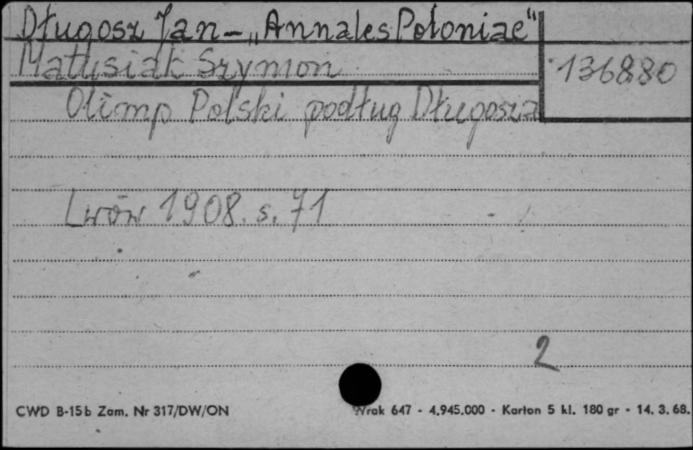 Długosz Jan – „Annales Poloniae"
Matusiak Szymon
136880
Olimp Polski podług Długosza
Lwów 1908. s. 71
2
CWD B-15b Zam. Nr 317/DW/ON
Wrak 647 - 4.945.000 - Karton 5 kl. 180 gr - 14. 3. 68.